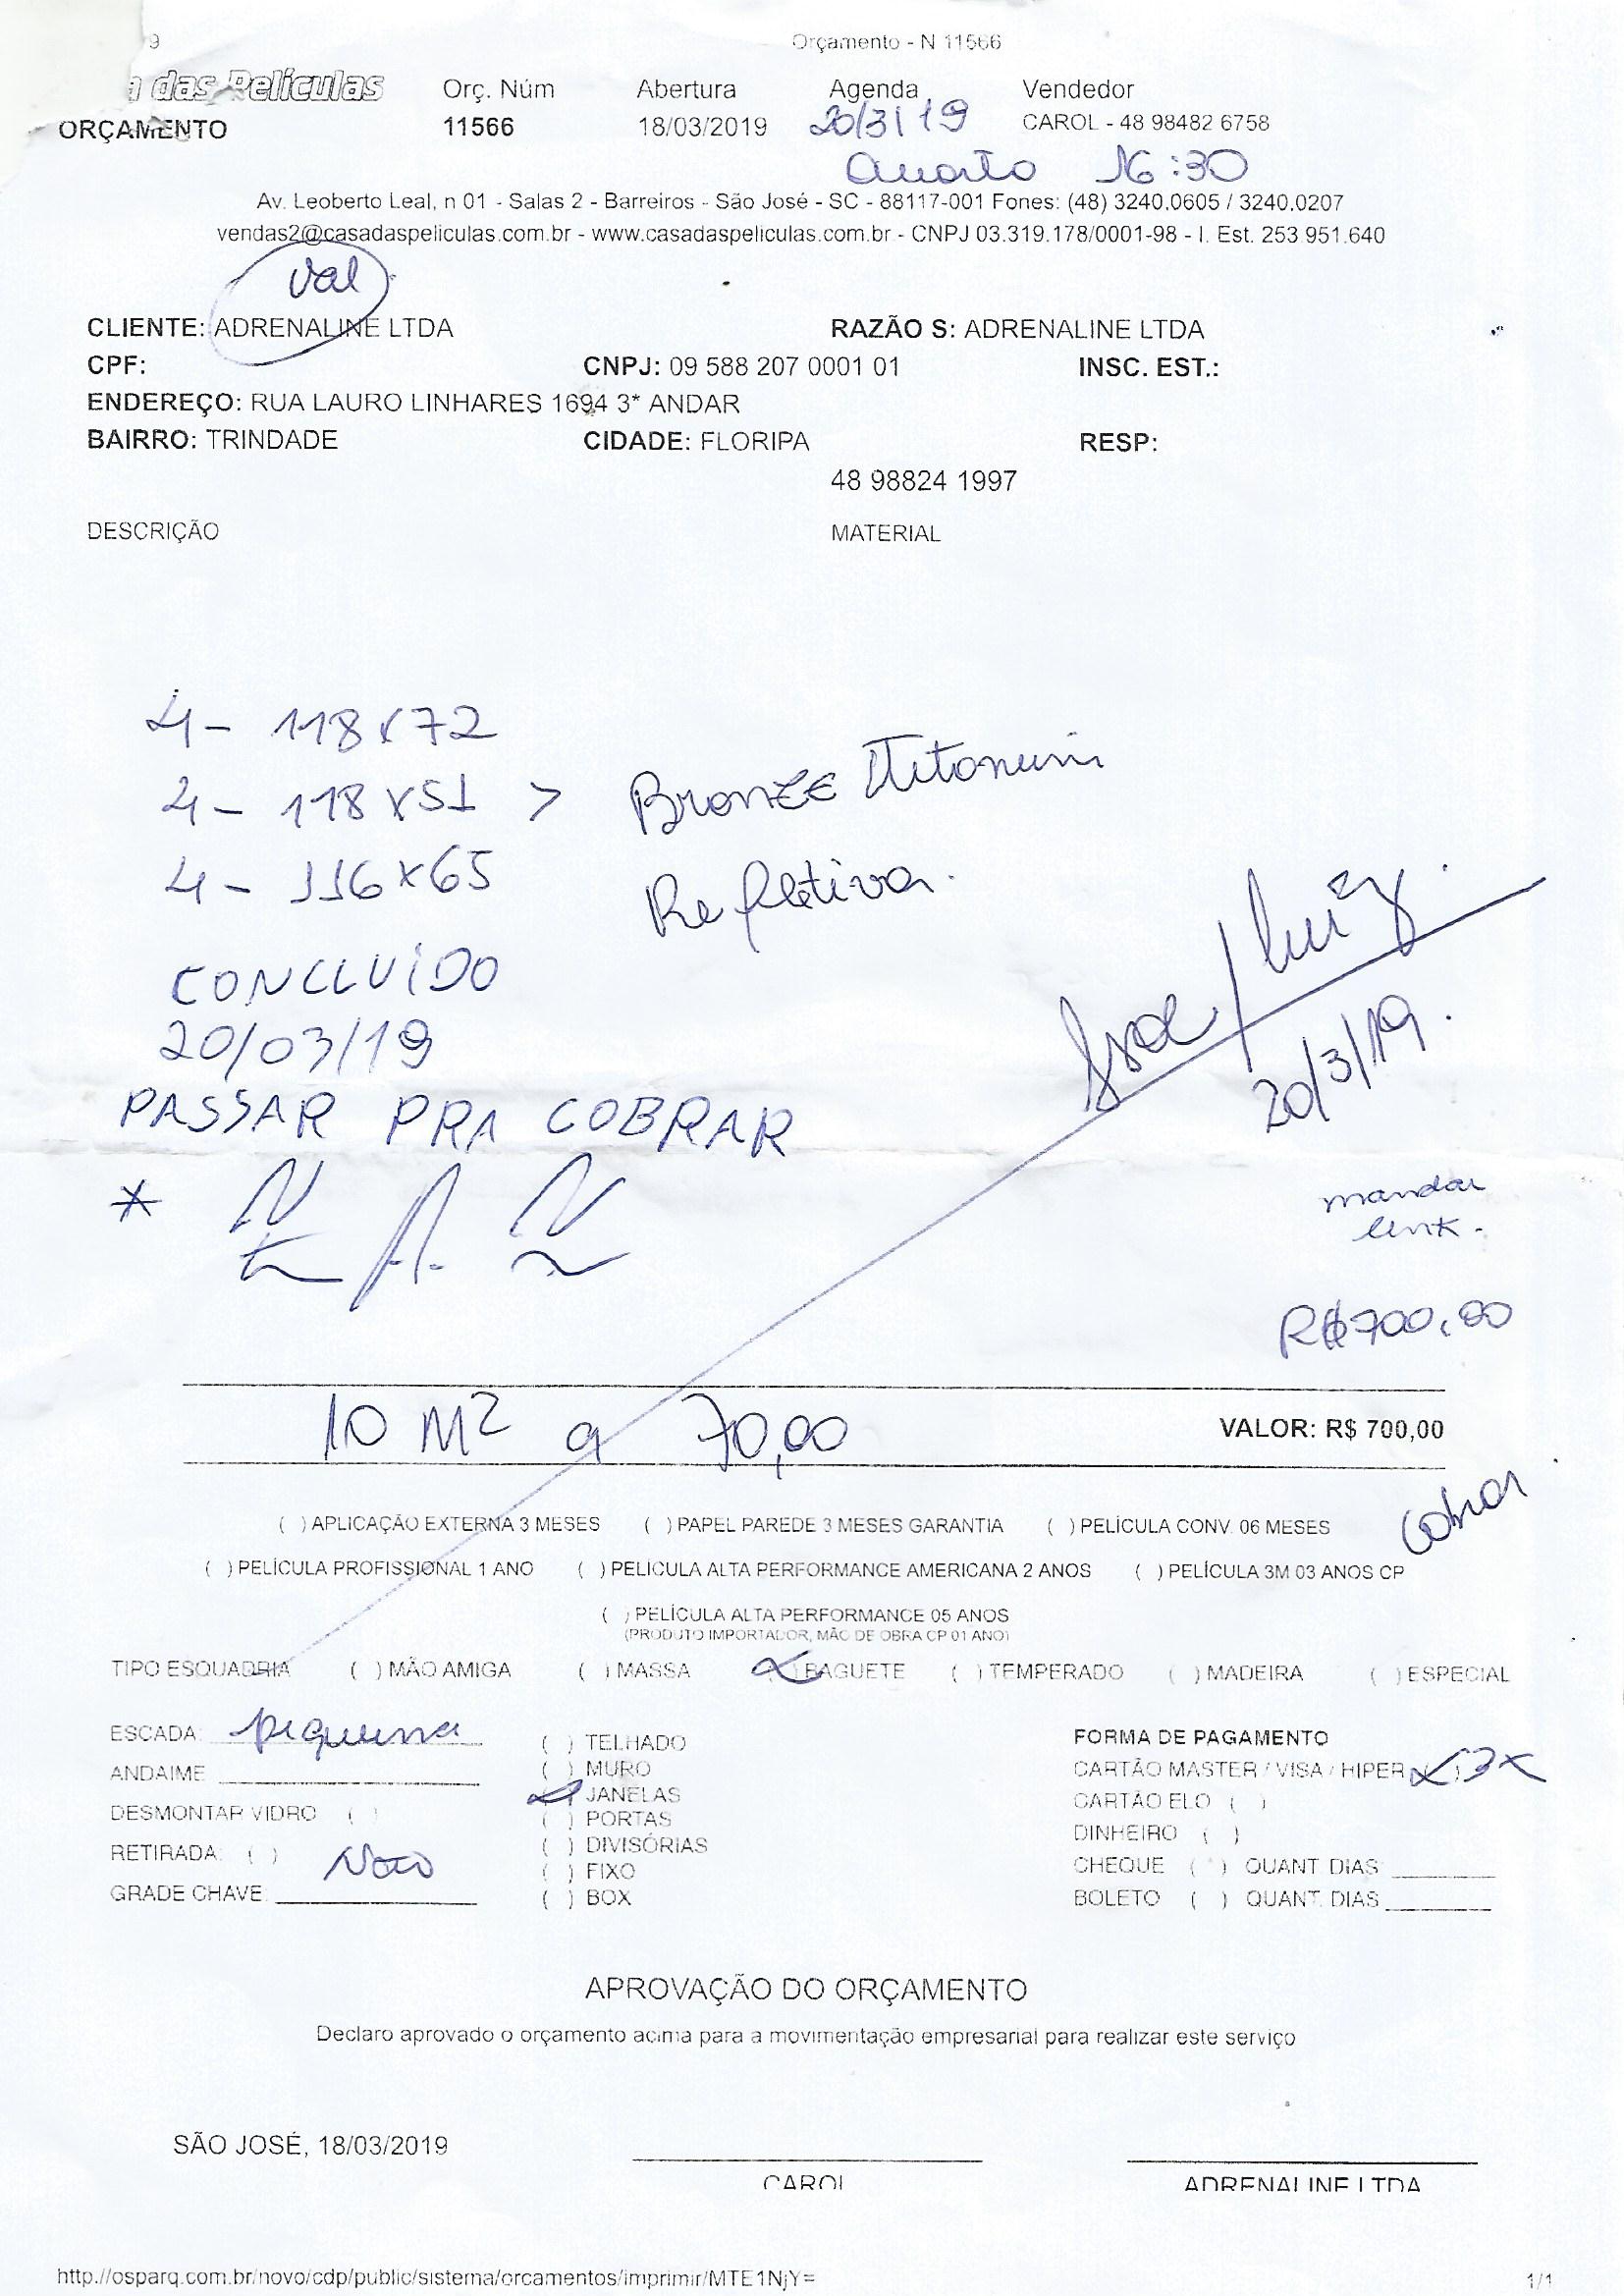 9 Orçamento - N 11566
a das Películas Orç. Núm Abertura Agenda Vendedor
ORÇAMENTO 11566 18/03/2019 20/3/19 CAROL - 48 98482 6758
Quarta 16:30
Av. Leoberto Leal, n 01 - Salas 2 - Barreiros - São José - SC - 88117-001 Fones: (48) 3240.0605 / 3240.0207
vendas2@casadaspeliculas.com.br - www.casadaspeliculas.com.br - CNPJ 03.319.178/0001-98 - I. Est. 253.951.640
Val
CLIENTE: ADRENALINE LTDA RAZÃO S: ADRENALINE LTDA
CPF: CNPJ: 09 588 207 0001 01 INSC. EST.:
ENDEREÇO: RUA LAURO LINHARES 1694 3* ANDAR
BAIRRO: TRINDADE CIDADE: FLORIPA RESP:
48 98824 1997
DESCRIÇÃO MATERIAL
4 - 118x72
4 - 118x51 > Bronze
4 - 116x65 Refletiva.
CONCLUIDO Luiz
20/03/19 20/3/19.
PASSAR PRA COBRAR
*
mandar
link -
R$700,00
10 M² a 70,00 VALOR: R$ 700,00
Cobrar
( ) APLICAÇÃO EXTERNA 3 MESES ( ) PAPEL PAREDE 3 MESES GARANTIA ( ) PELÍCULA CONV. 06 MESES
( ) PELÍCULA PROFISSIONAL 1 ANO ( ) PELICULA ALTA PERFORMANCE AMERICANA 2 ANOS ( ) PELÍCULA 3M 03 ANOS CP
( ) PELÍCULA ALTA PERFORMANCE 05 ANOS
(PRODUTO IMPORTADOR, MÃO DE OBRA CP 01 ANO)
TIPO ESQUADRIA ( ) MÃO AMIGA ( ) MASSA (x) BAGUETE ( ) TEMPERADO ( ) MADEIRA ( ) ESPECIAL
ESCADA: pequena ( ) TELHADO FORMA DE PAGAMENTO
ANDAIME ( ) MURO CARTÃO MASTER / VISA / HIPER (x) 3x
(x) JANELAS CARTÃO ELO ( )
DESMONTAR VIDRO ( ) ( ) PORTAS DINHEIRO ( )
RETIRADA: ( ) Não ( ) DIVISÓRIAS CHEQUE ( ) QUANT. DIAS
( ) FIXO
GRADE CHAVE: ( ) BOX BOLETO ( ) QUANT. DIAS
APROVAÇÃO DO ORÇAMENTO
Declaro aprovado o orçamento acima para a movimentação empresarial para realizar este serviço
SÃO JOSÉ, 18/03/2019
CAROL ADRENALINE LTDA
http://osparq.com.br/novo/cdp/public/sistema/orcamentos/imprimir/MTE1NjY= 1/1